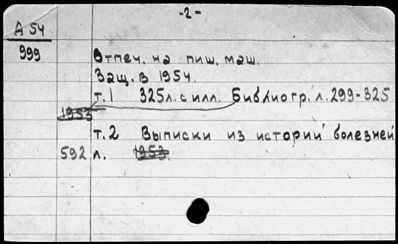 -2-
Д 54
999
Отпеч. на пиш. маш.
Защ. в 1954.
т.1 325 л. с илл. Библиогр. л. 299-325
1953
т.2 Выписки из истории болезней
592 л. 1953